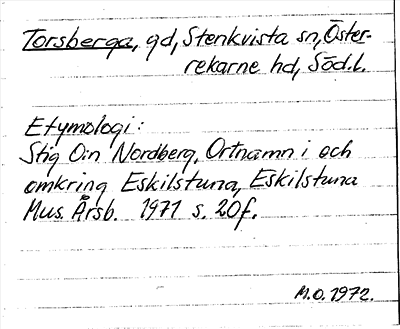 Torsberga, gd, Stenkvista sn, Öster-
rekarne hd, Söd.l.
Etymologi:
Stig O:n Nordberg, Ortnamn i och
omkring Eskilstuna, Eskilstuna
Mus. Årsb. 1971 s. 20f.
M.O. 1972.